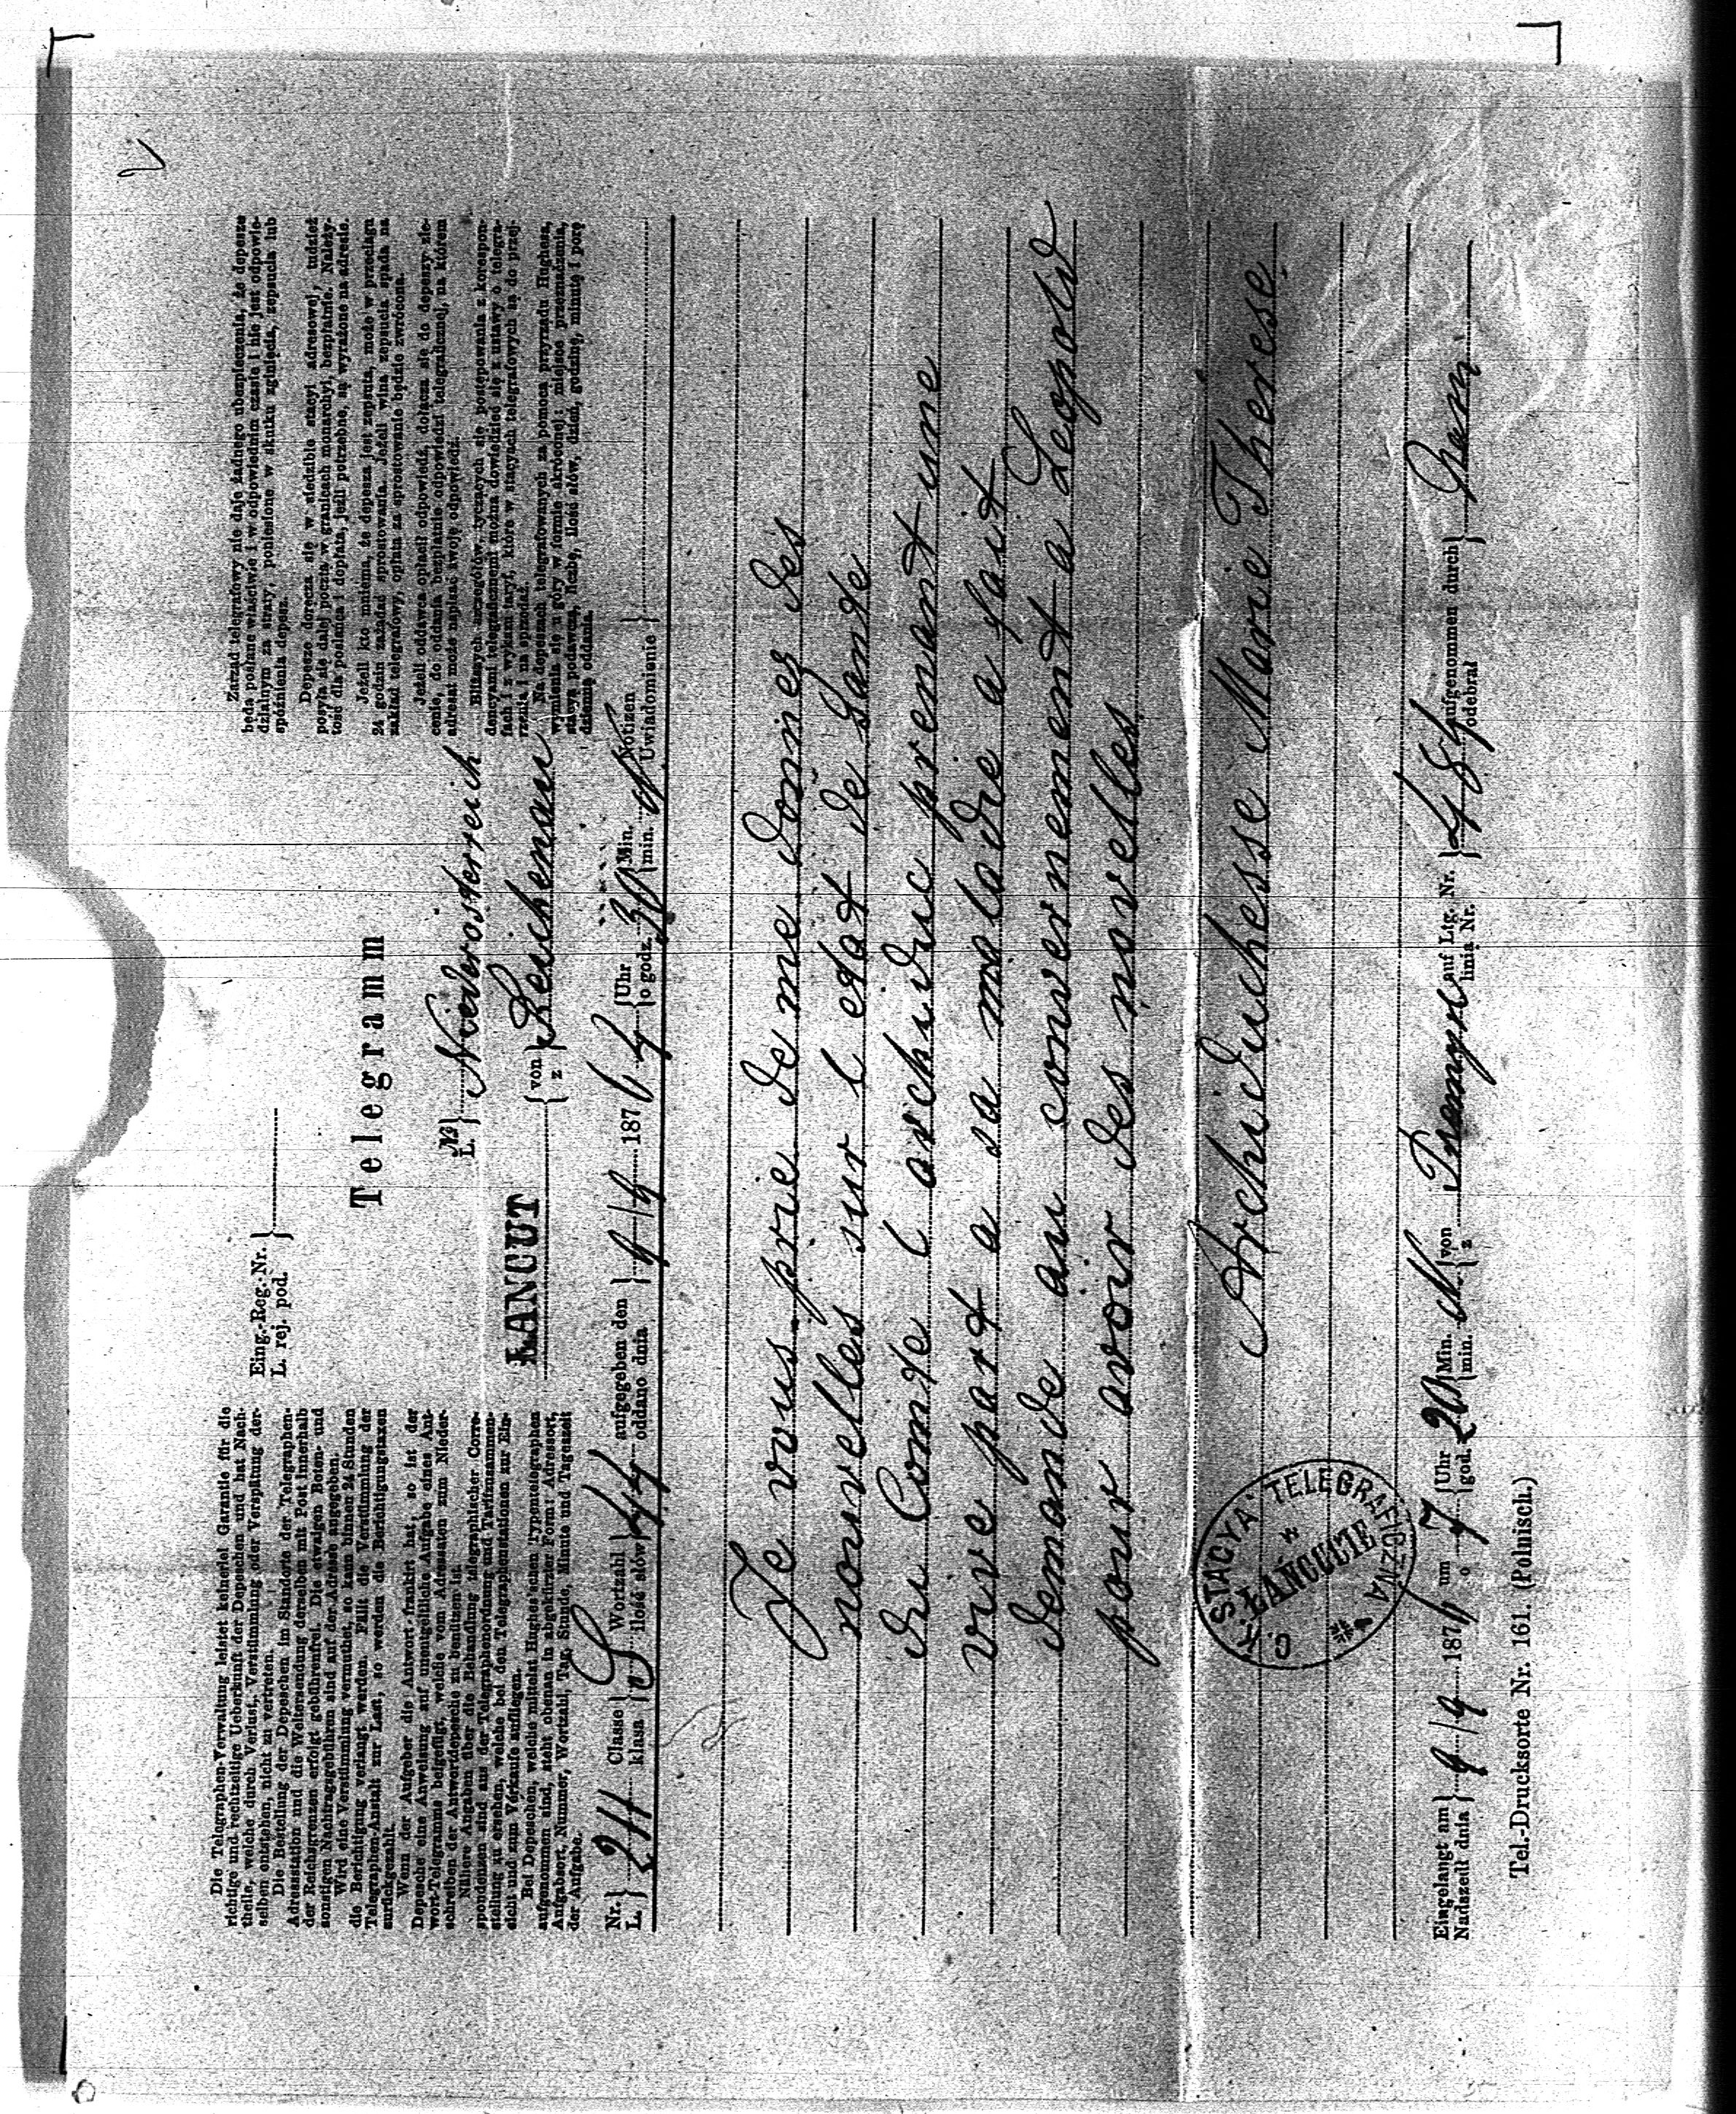 Die Telegraphen-Verwaltung leistet keinerlei Garantie für die
richtige und rechtzeitige Ueberkunft der Depeschen und hat Nach-
theile, welche durch Verlust, Verstümmlung oder Verspätung der-
selben entstehen, nicht zu vertreten.
Die Bestellung der Depeschen im Standorte der Telegraphen-
Adressstation und die Weitersendung derselben mit Post innerhalb
der Reichsgrenzen erfolgt gebührenfrei. Die etwaigen Boten- und
sonstigen Nachtragsgebühren sind auf der Adresse angegeben.
Wird eine Verstümmlung vermuthet, so kann binnen 24 Stunden
die Berichtigung verlangt werden. Fällt die Verstümmlung der
Telegraphen-Anstalt zur Last, so werden die Berichtigungstaxen
zurückgezahlt.
Wenn der Aufgeber die Antwort frankirt hat, so ist der
Depesche eine Anweisung auf unentgeltliche Aufgabe eines Ant-
wort-Telegramms beigefügt, welche vom Adressaten zum Nieder-
schreiben der Antwortdepesche zu benützen ist.
Nähere Angaben über die Behandlung telegraphischer Corre-
spondenzen sind aus der Telegraphenordnung und Tarifzusammen-
stellung zu ersehen, welche bei den Telegraphenstationen zur Ein-
sicht und zum Verkaufe aufliegen.
Bei Depeschen, welche mittelst Hughes'schen Typentelegraphen
aufgenommen sind, steht obenan in abgekürzter Form: Adressort,
Aufgabsort, Nummer, Wortzahl, Tag, Stunde, Minute und Tageszeit
der Aufgabe.
Eing.-Reg.-Nr.
L. rej. pod.
Telegramm
№
L.
Niederosterreich
ŁAŃCUT
von
z
Reichenau
Zarząd telegrafowy nie daje żadnego ubezpieczenia, że depesze
będą posłane właściwie i w odpowiednim czasie i nie jest odpowie-
dzialnym za straty, poniesione w skutku zginięcia, zepsucia lub
spóźnienia depesz.
Depesze doręcza się w siedzibie stacyi adresowej, tudzież
posyła się dalej pocztą w granicach monarchyi, bezpłatnie. Należy-
tość dla posłańca i dopłata, jeźli potrzebne, są wyrażone na adresie.
Jeżeli kto mniema, że depesza jest zepsuta, może w przeciągu
24 godzin żądać sprostowania. Jeżeli wina zepsucia spada na
zakład telegrafowy, opłata za sprostowanie będzie zwrócona.
Jeżeli oddawca opłacił odpowiedź, dołącza się do depeszy zle-
cenie, do oddania bezpłatnie odpowiedzi telegraficznej, na którem
adresat może napisać swoję odpowiedź.
Bliższych szczegółów, tyczących się postępowania z korespon-
dencyami telegraficznemi można dowiedzieć się z ustawy o telegra-
fach i z wykazu taryf, które w stacyach telegrafowych są do przej-
rzenia i na sprzedaż.
Na depeszach telegrafowanych za pomocą przyrządu Hughesa,
wymienia się u góry w formie skróconej: miejsce przeznaczenia,
stacyą podawczą, liczbę, ilość słów, dzień, godzinę, minutę i porę
dzienną oddania.
Nr. L. 211 Classe klasa S Wortzahl ilość słów 44 aufgegeben den oddano dnia 9/9 1876 4 Uhr o godz. 30 Min. min. N Notizen Uwiadomienie
Je vous prie de me donnez des
nouvelles sur l etat de Sande
du Comte l archiduc prenant une
vive part a sa maladie a fait
demande au convernement a Leopold
pour avoir des novelles
Archiduchesse Marie Therese
C. K. STACYA TELEGRAFICZNA
w ŁAŃCUCIE
Eingelangt am Nadszedł dnia 9/9 1876 um o 7 Uhr god. 20 Min. min. N von z Przemysl auf Ltg. Nr. linia Nr. 484 aufgenommen durch odebrał
Tel.-Drucksorte Nr. 161. (Polnisch.)